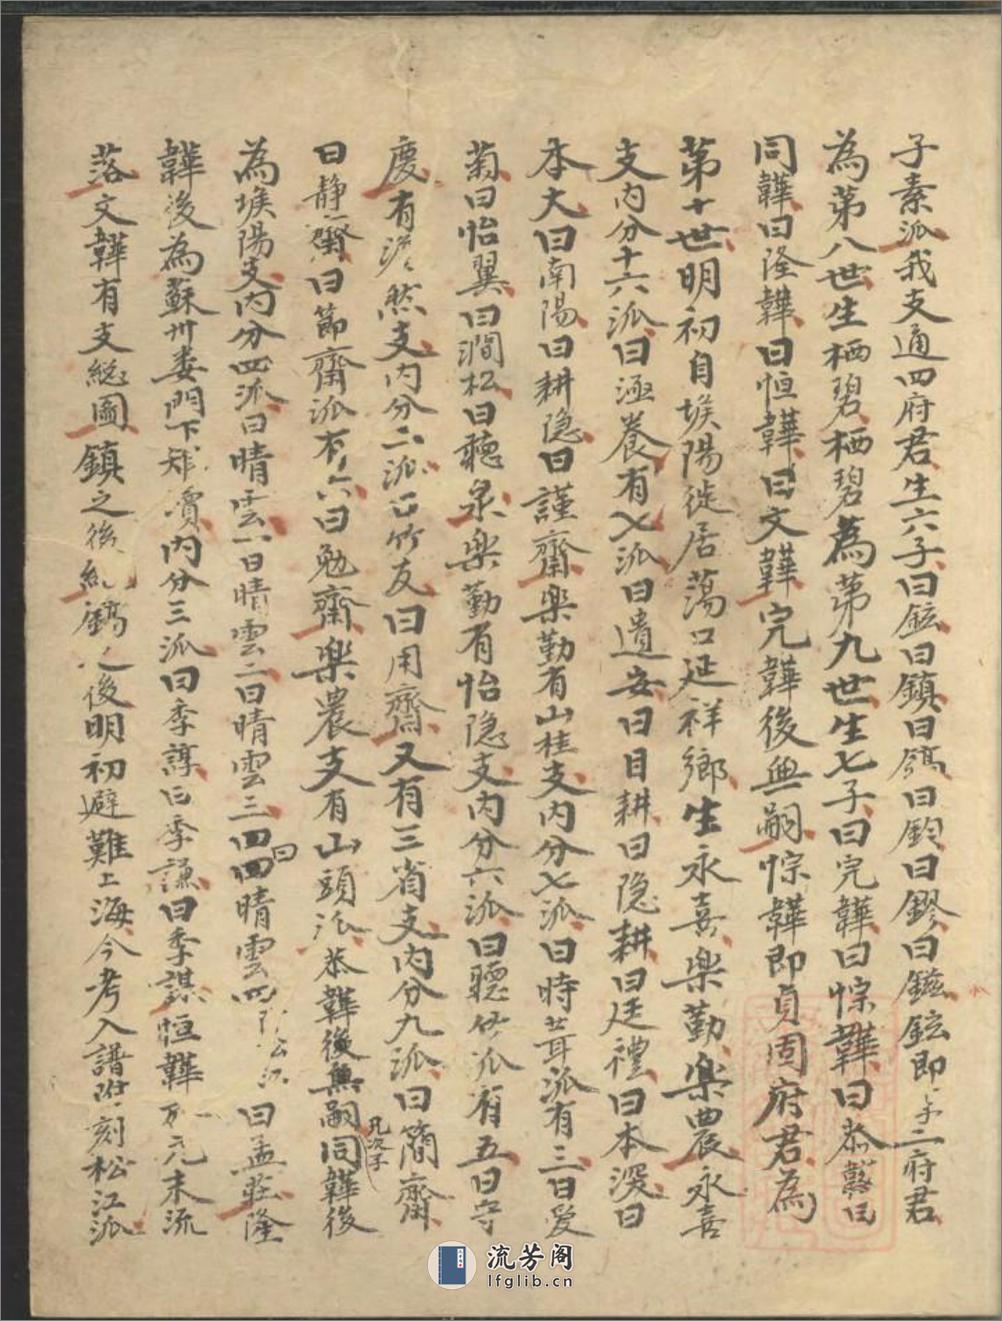 子素派我支通四府君生六子曰鉉曰鎮曰鎬曰鈞曰鏐曰鎰鉉即二府君
為第八世生栖碧栖碧為第九世生七子曰完韡曰悰韡曰恭韡曰
同韡曰隆韡曰恒韡曰文韡完韡後無嗣悰韡即貞固府君為
第十世明初自堠陽徙居蕩口延祥鄉生永喜樂勤樂農永喜
支內分十六派曰逐養有七派曰遺安曰目耕曰隱耕曰廷禮曰本深曰
本大曰南陽曰耕隱曰謹齋樂勤有山桂支內分七派曰時茸派有三曰愛
菊曰怡翼曰澗松曰聽泉樂勤有怡隱支內分六派曰聽竹派有五曰守
慶有支內分二派曰竹友曰用齋又有三省支內分九派曰簡齋
曰靜齋曰節齋派有六曰勉齋樂農支有山頭派恭韡後無嗣同韡後
為堠陽支內分四派曰晴雲一曰晴雲二曰晴雲三曰四晴雲四曰孟莊隆
韡後為蘇州婁門下雉瀆內分三派曰季諄曰季謙曰季謀恒韡元末流
落文韡有支總圖鎮之後鎬之後明初避難上海今考入譜附刻松江派
流芳阁
lfglib.cn